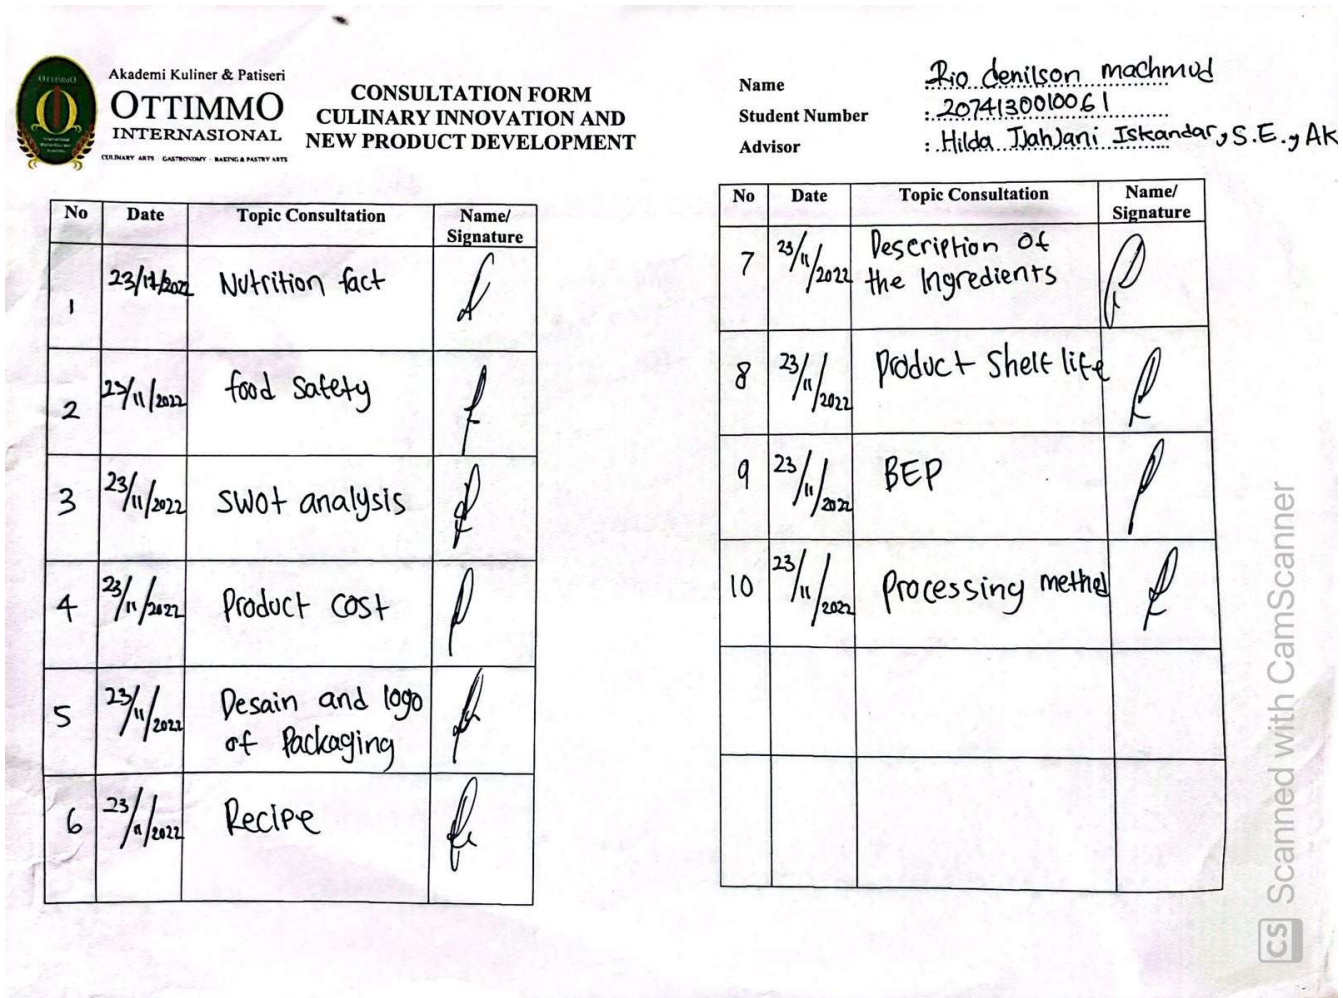 OTTIMMO
Akademi Kuliner & Patiseri
OTTIMMO
INTERNASIONAL
CULINARY ARTS · GASTRONOMY · BAKING & PASTRY ARTS
CONSULTATION FORM
CULINARY INNOVATION AND
NEW PRODUCT DEVELOPMENT
Name Rio denilson machmud
Student Number : 2074130010061
Advisor : Hilda Iskandar, S.E., Ak
No Date Topic Consultation Name/
Signature
1 23/11/2022 Nutrition fact
2 23/11/2022 food Safety
3 23/11/2022 SWOt analysis
4 23/11/2022 Product cost
5 23/11/2022 Desain and logo
of Packaging
6 23/11/2022 Recipe
No Date Topic Consultation Name/
Signature
7 23/11/2022 Description Of
the Ingredients
8 23/11/2022 Product Shelf life
9 23/11/2022 BEP
10 23/11/2022 Processing
CS Scanned with CamScanner